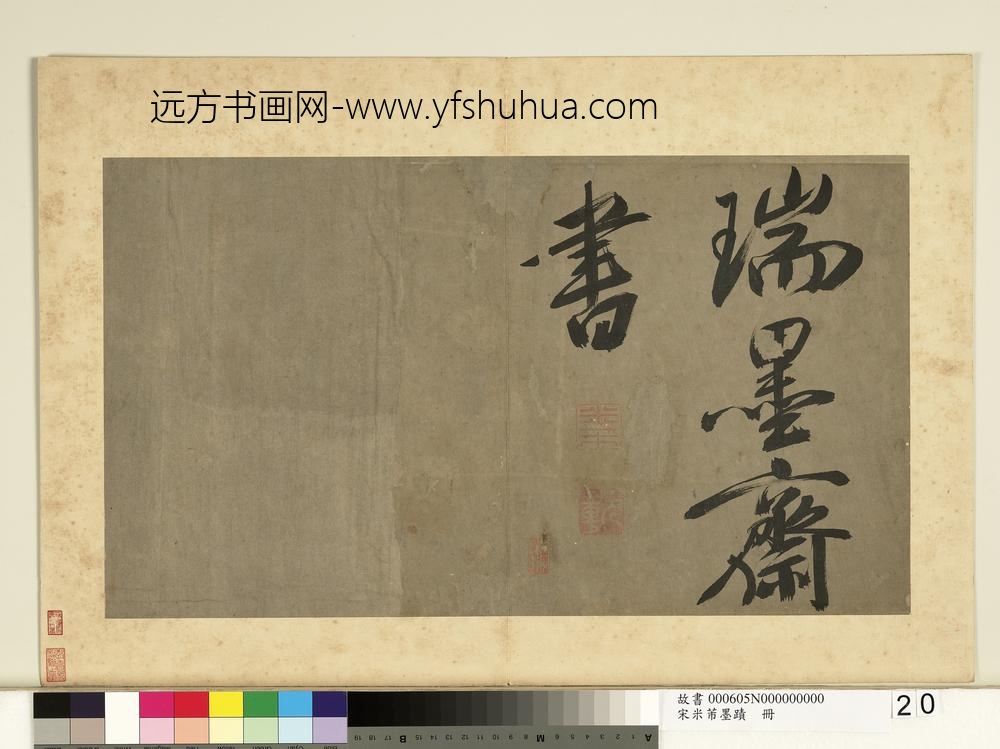 远方书画网-www.yfshuhua.com
瑞墨齋
書
故書 000605N000000000
宋米芾墨蹟 冊
20